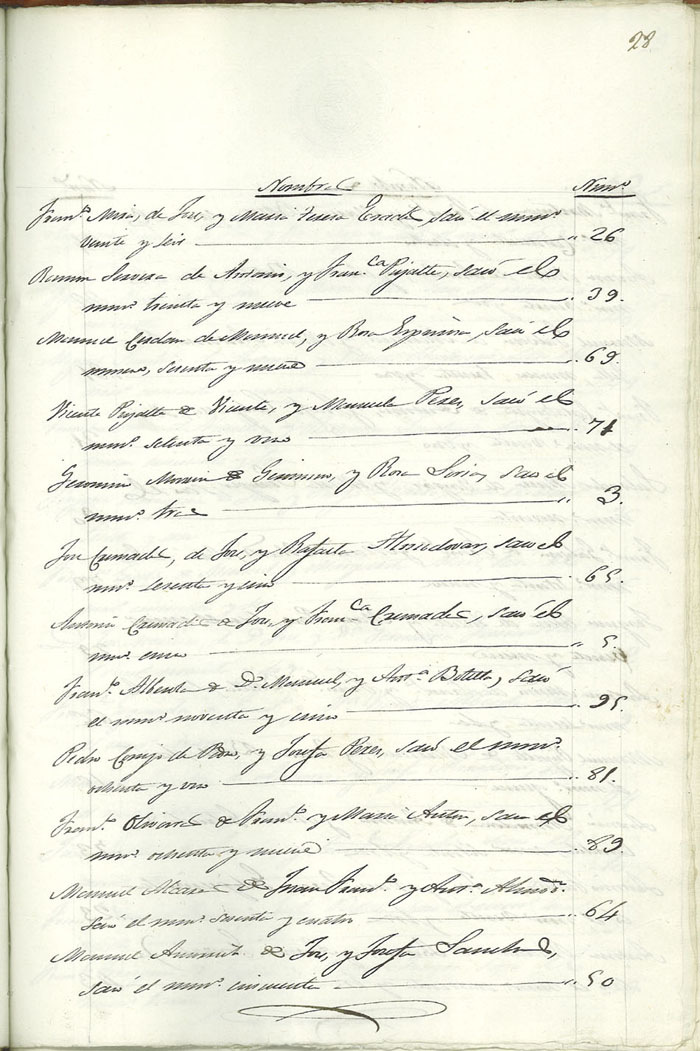 28
Nombres Numº
Franº Mira, de José, y Maria Teresa sacó el numº
veinte y seis 26
Ramon Cervera de Antonio, y Franca Pujalte, sacó el
numº treinta y nueve 39.
Manuel Cerdan de Manuel, y Rosa Espinosa, sacó el
numero, sesenta y nueve 69.
Vicente Pujalte de Vicente, y Manuela Perez, sacó el
numº setenta y uno 71
Geronimo de Geronimo, y Rosa Soria, sacó el
numº tres 3.
José Cremades, de José, y Rafaela Almodovar, sacó el
numº sesenta y cinco 65.
Antonio Cremades de José, y Franca Cremades, sacó el
numº cinco 5.
Franº de Dn Manuel, y Antª Botella, sacó
el numº noventa y cinco 95.
Pedro de y Josefa Perez, sacó el numº
ochenta y uno 81.
Franº Olivares de Franº y Maria Anton, sacó el
numº ochenta y nueve 89.
Manuel de Juan Franº y Antª
sacó el numº sesenta y cuatro 64
Manuel de José, y Josefa Sanchez,
sacó el numº cincuenta 50